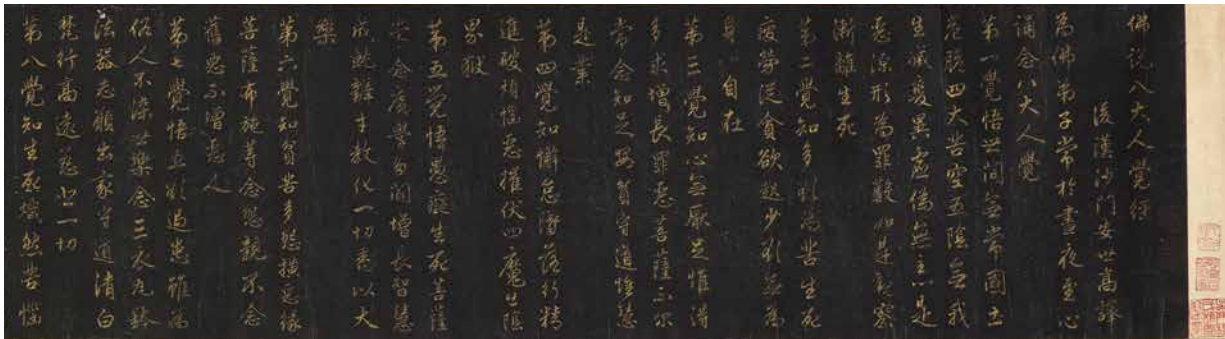 佛說八大人覺經
後漢沙門安世高譯
為佛弟子常於晝夜至心
誦念八大人覺
第一覺悟世間無常國土
危脆四大苦空五陰無我
生滅變異虛偽無主心是
惡源形為罪藪如是觀察
漸離生死
第二覺知多欲為苦生死
疲勞從貪欲起少欲無為
身心自在
第三覺知心無厭足惟得
多求增長罪惡菩薩不爾
常念知足安貧守道惟慧
是業
第四覺知懈怠墜落行精
進破煩惱惡摧伏四魔出陰
界獄
第五覺悟愚癡生死菩薩
常念廣學多聞增長智慧
成就辯才教化一切悉以大
樂
第六覺知貧苦多怨橫惡緣
菩薩布施等念怨親不念
舊惡不憎惡人
第七覺悟五欲過患雖為
俗人不染世樂念三衣瓦鉢
法器志願出家守道清白
梵行高遠慈悲一切
第八覺知生死熾然苦惱